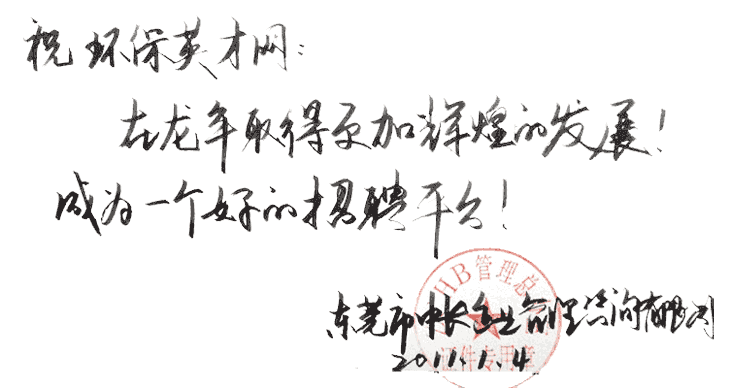 祝环保英才网：
在龙年取得更加辉煌的发展！
成为一个好的招聘平台！
HB管理总
东莞市中长企业管理咨询有限公司
证件专用章
2011.1.4